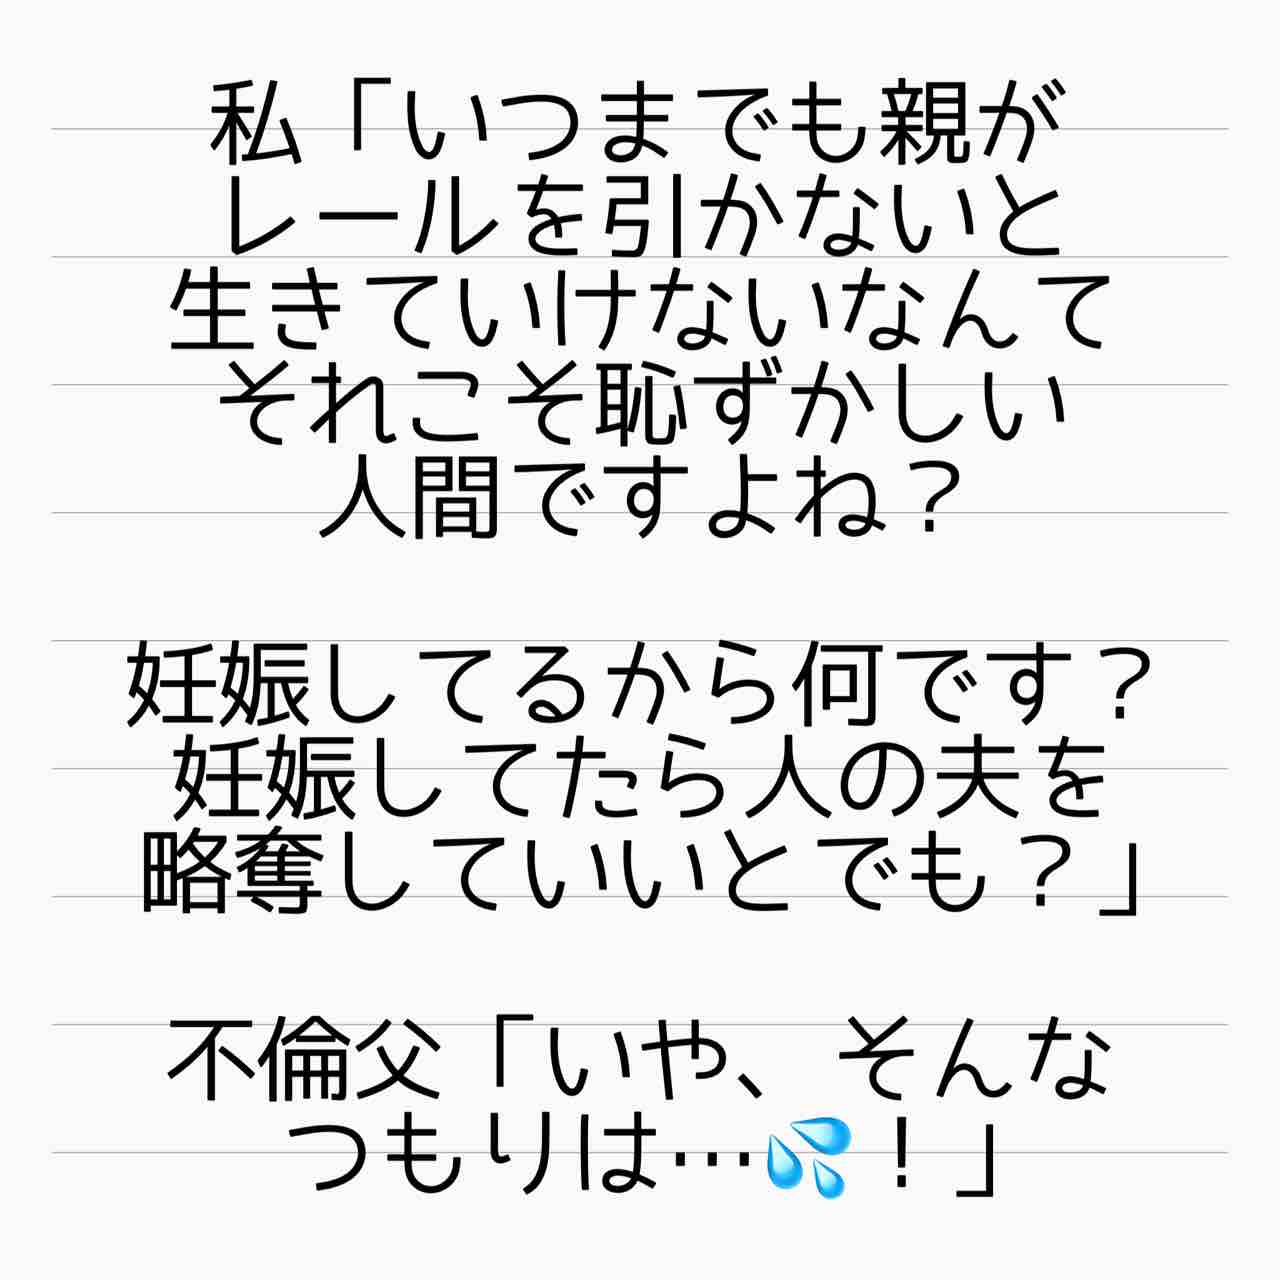 私「いつまでも親が
レールを引かないと
生きていけないなんて
それこそ恥ずかしい
人間ですよね？
妊娠してるから何です？
妊娠してたら人の夫を
略奪していいとでも？」
不倫父「いや、そんな
つもりは…💦！」